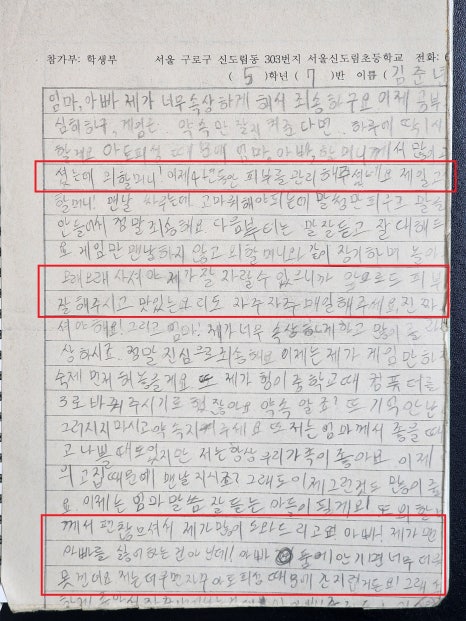 참가부: 학생부 서울 구로구 신도림동 303번지 서울신도림초등학교 전화:
( 5 )학년 ( 7 ) 반 이름 ( 김준
엄마, 아빠 제가 너무 속상하게 해서 죄송하구요 이제 공부
심히하구, 게임은 약속만 잘 지켜준다면 하루에 딱 1시
할게요 아토피성 때문에 엄마, 아빠, 할머니께서 많이
셨는데 외할머니! 이제 4년동안 피부를 관리해주셨네요 제일 고
할머니! 맨날 싸우는데. 고마워해야되는데 말썽만 피우고 말을
안들어서 정말 죄송해요. 다음부터는 말 잘듣고 잘 대해
요 게임만 맨날하지 않고 외할머니와 같이 장기하며 놀아
오래오래 사셔야 제가 잘 자랄수 있으니까 앞으로도 피부
잘 해주시고 맛있는 요리도 자주 자주 매일 해주세요. 진짜
셔야 해요! 그리고 엄마! 제가 너무 속상하게 하고 많이
상하시죠. 정말 진심으로 죄송해요 이제는 제가 게임만 하지
숙제 먼저 해놓을게요 또 제가 형이 중학교때 컴퓨터를
3로 바꿔 주시기로 했잖아요 약속 알죠? 또 기억안난
그러시지 마시고 약속지켜주세요 또 저는 엄마께서 좋을때
고 나쁠때도 있지만 저는 항상 우리가족이 좋아요 이제
의 고집때문에 맨날 지시죠? 그래도 이제 그런것도 많이
요 이제는 엄마 말씀 잘 듣는 아들이 될게요! 또 외할
께서 편찮으셔서 제가 많이 도와드리고요 아빠! 제가 맨
아빠를 싫어하는건 아닌데! 아빠 품에 안기면 너무 더워
못껴더요 저는 더우면 자꾸 아토피성 때문에 간지럽거든요! 그래